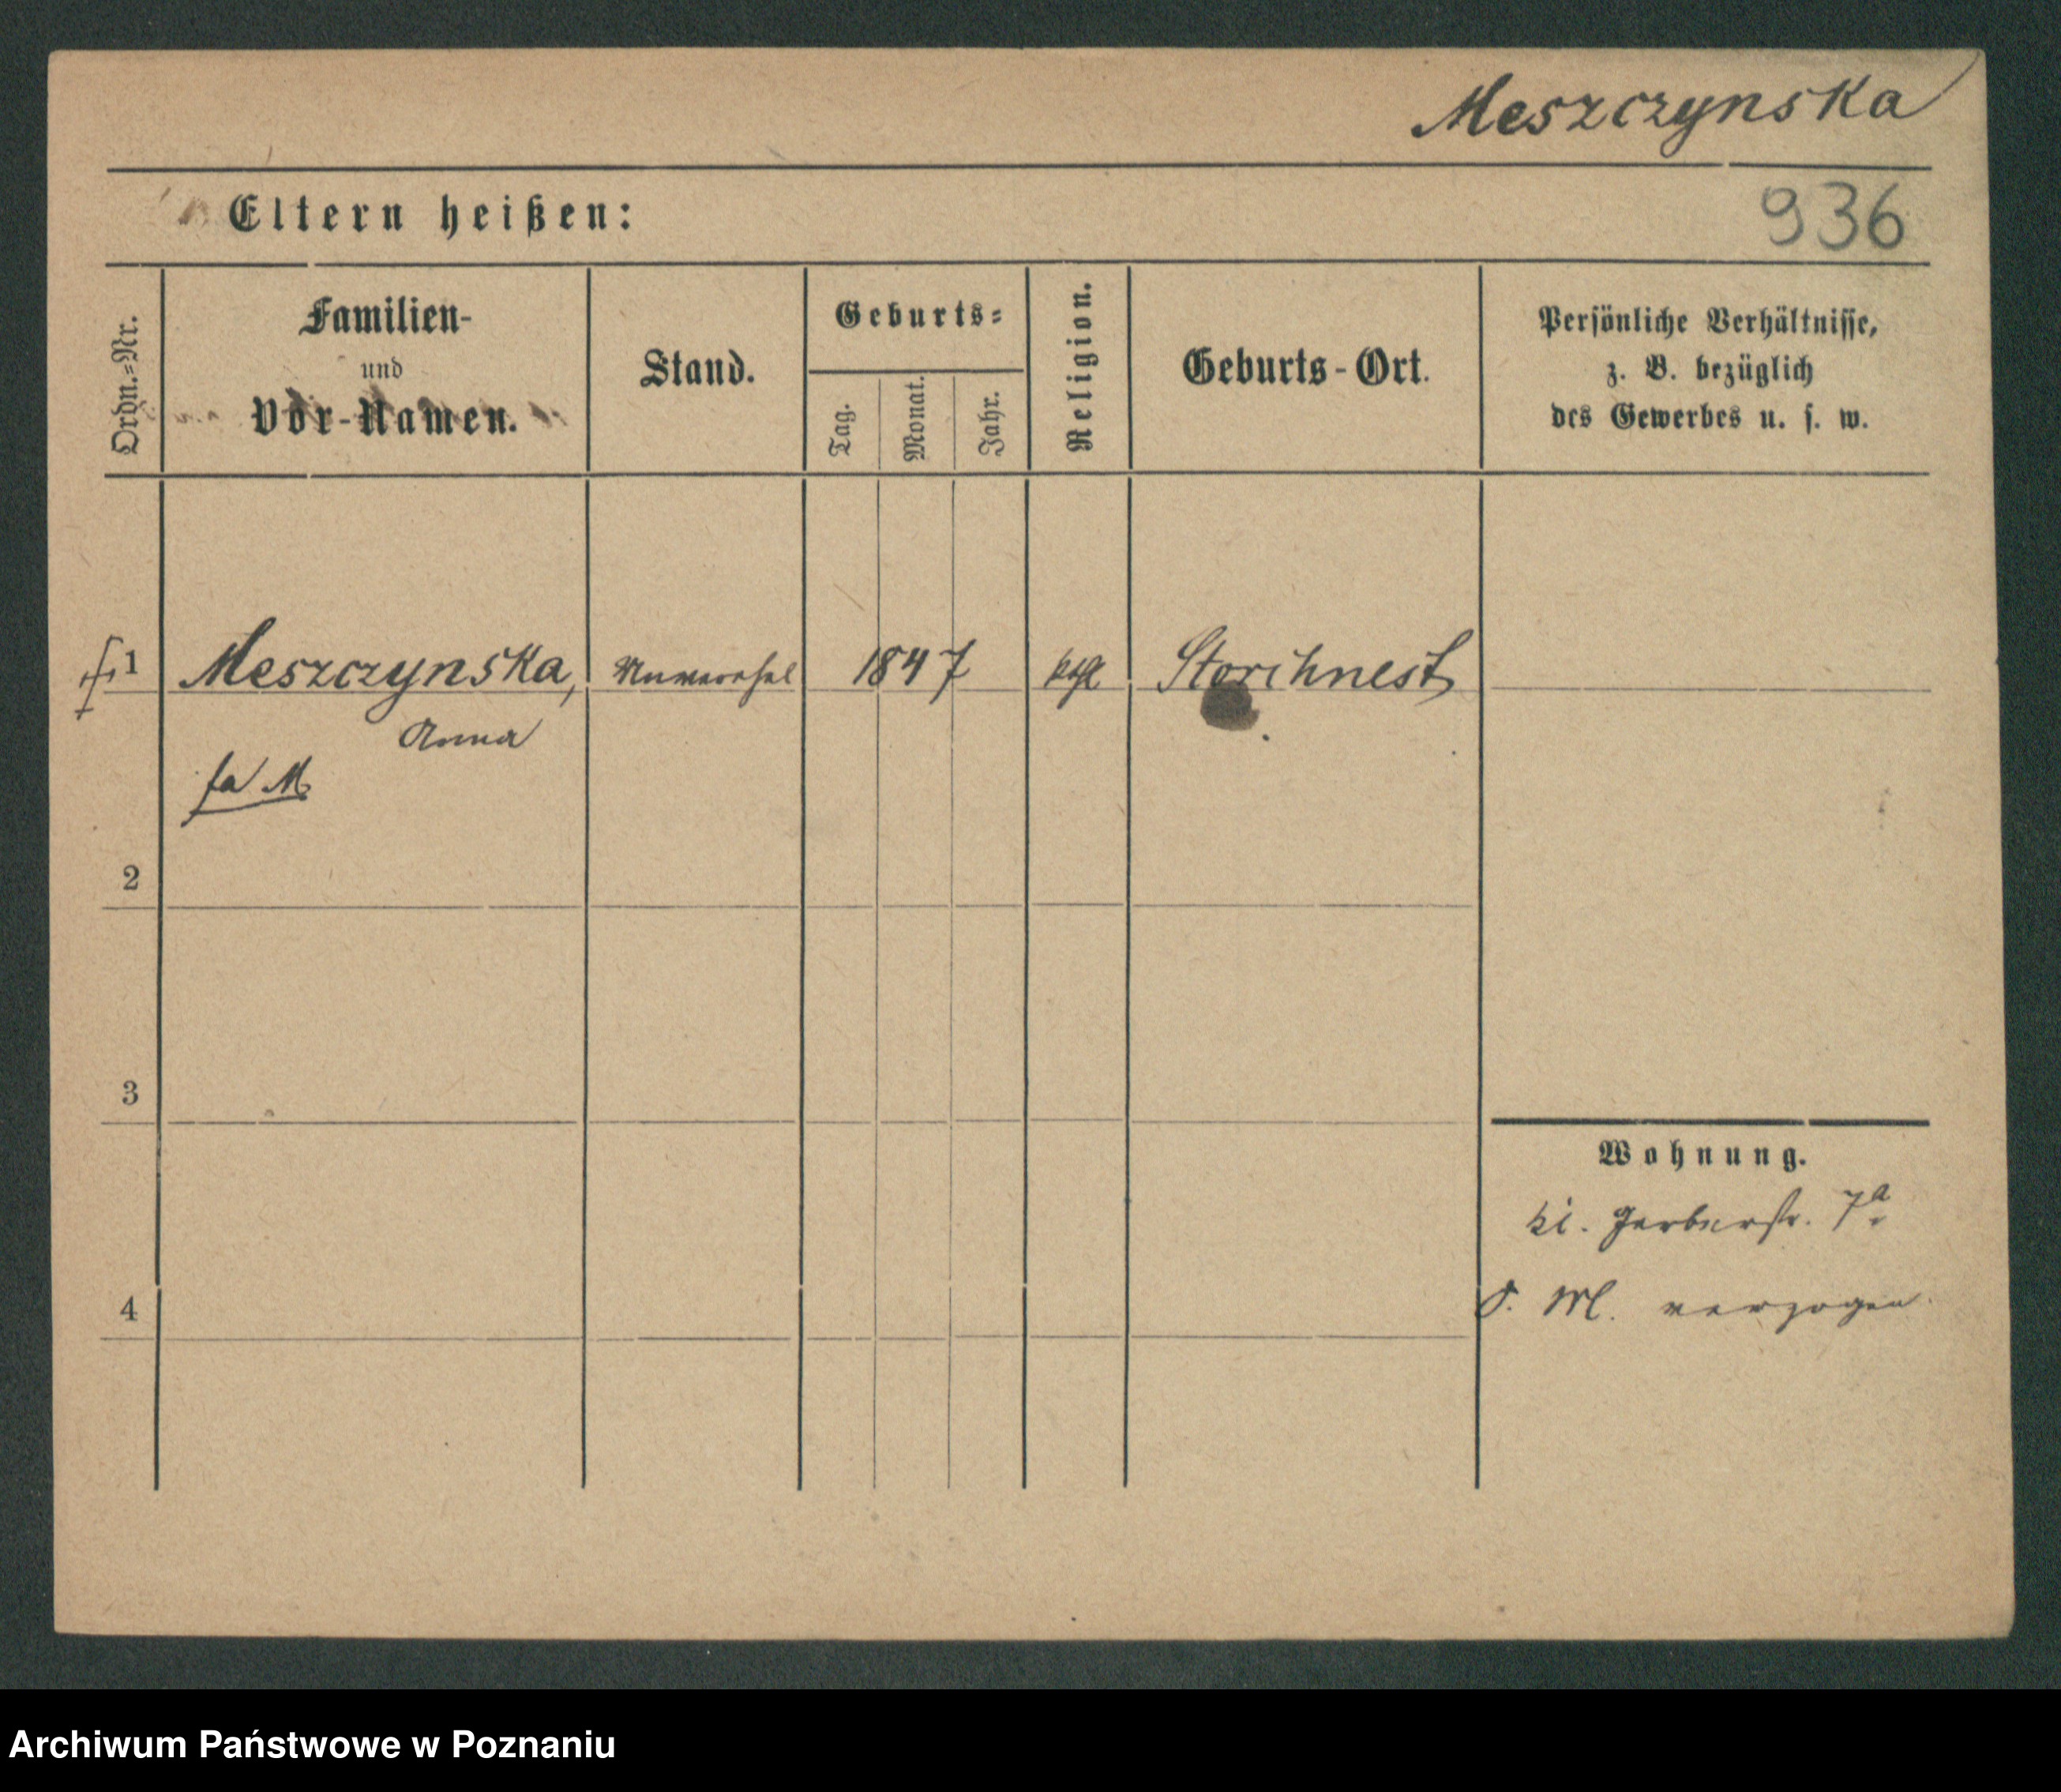 Meszczynska
936
Eltern heißen:
Ordn.-Nr.
Familien-
und
Vor-Namen.
Stand.
Geburts-
Tag.
Monat.
Jahr.
Religion.
Geburts-Ort.
Persönliche Verhältnisse,
z. B. bezüglich
des Gewerbes u. s. w.
1 Meszczynska, Unverehel 1847 kth Storchnest
Anna
fa M
2
3
Wohnung.
kl. Gerberstr. 7a
4
O. M. verzogen
Archiwum Państwowe w Poznaniu